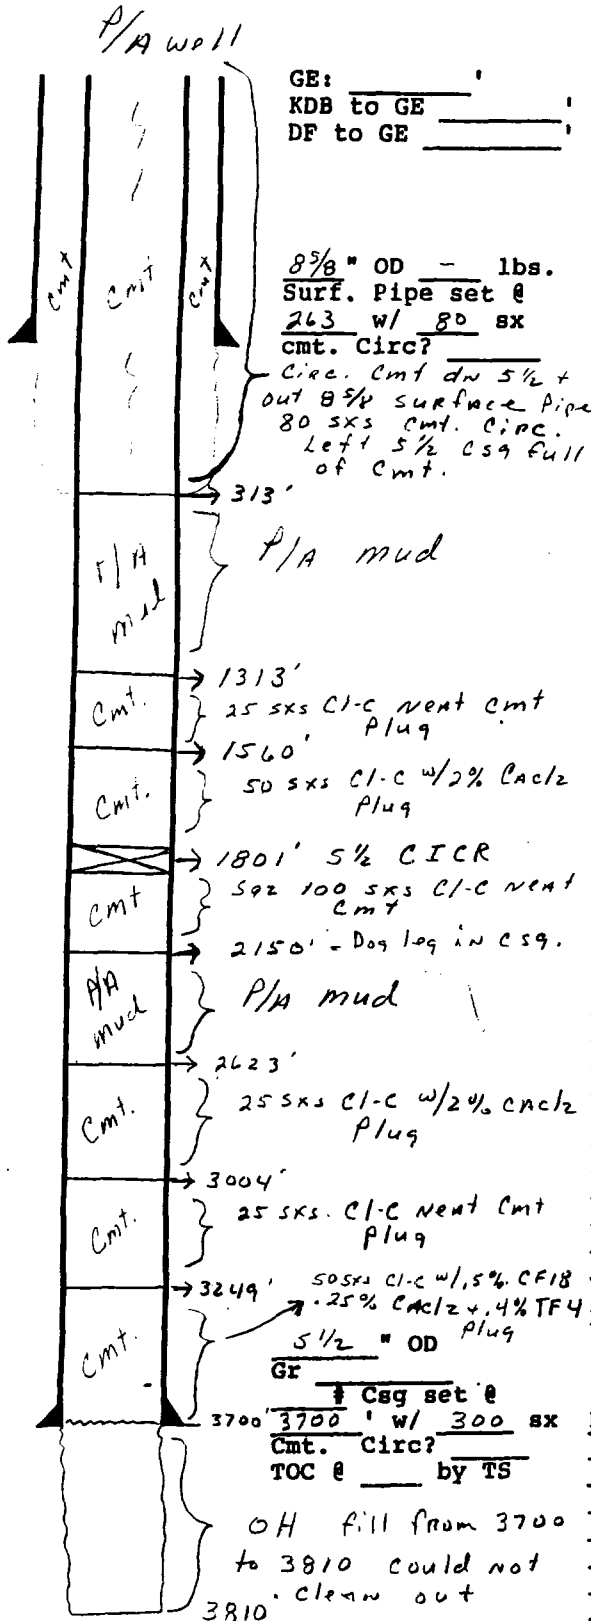 P/A well
GE: ________'
KDB to GE ________'
DF to GE ________'
Cmt
Cmt
Cmt
8 5/8 " OD - lbs.
Surf. Pipe set @
263 w/ 80 sx
cmt. Circ? ______
Circ. Cmt dn 5 1/2 +
out 8 5/8 surface Pipe
80 sxs Cmt. Circ.
Left 5 1/2 csg full
of Cmt.
313'
P/A mud
P/A mud
1313'
Cmt.
25 sxs Cl-C Neat Cmt
Plug
1560'
Cmt.
50 sxs Cl-C w/2% CAcl2
Plug
1801' 5 1/2 CICR
Cmt
Sqz 100 sxs Cl-C Neat
Cmt
2150' - Dog leg in csg.
P/A mud
P/A mud
2623'
Cmt.
25 sxs Cl-C w/2% CAcl2
Plug
3004'
Cmt.
25 sxs. Cl-C Neat Cmt
Plug
3249'
50 sxs Cl-C w/.5% CF18
.25% CAcl2 + .4% TF4
Plug
Cmt.
5 1/2 " OD
Gr ________
# Csg set @
3700' 3700 ' w/ 300 sx
Cmt. Circ? ______
TOC @ ____ by TS
OH fill from 3700
to 3810 could not
clean out
3810'